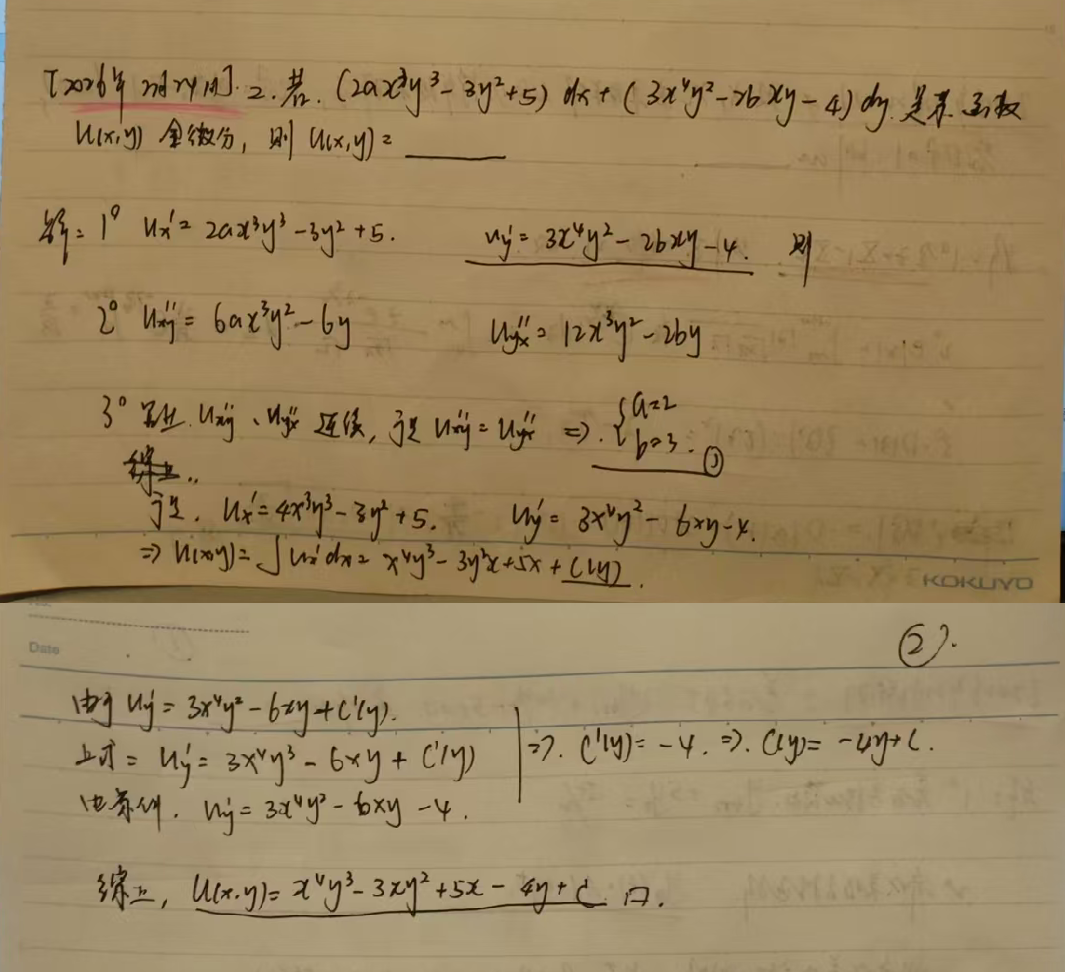 2.若.(2ax³y³-3y²+5)dx+(3x⁴y²-2bxy-4)dy.是某函数
u(x,y)全微分,则u(x,y)=______
解=1° ux'=2ax³y³-3y²+5. uy'=3x⁴y²-2bxy-4. 则
2° uxy''=6ax³y²-6y uyx''=12x³y²-2by
3° uxy''、uyx''连续,于是uxy''=uyx''⇒.{a=2 b=3. ①
综上..
于是. ux'=4x³y³-3y²+5. uy'=3x⁴y²-6xy-4.
⇒u(x,y)=∫ux'dx=x⁴y³-3y²x+5x+C(y).
KOKUYO
Date
②.
由于uy'=3x⁴y²-6xy+C'(y).
上式=uy'=3x⁴y³-6xy+C'(y) ⇒. C'(y)=-4. ⇒. C(y)=-4y+C.
由条件. uy'=3x⁴y²-6xy-4.
综上, u(x.y)=x⁴y³-3xy²+5x-4y+C. □.